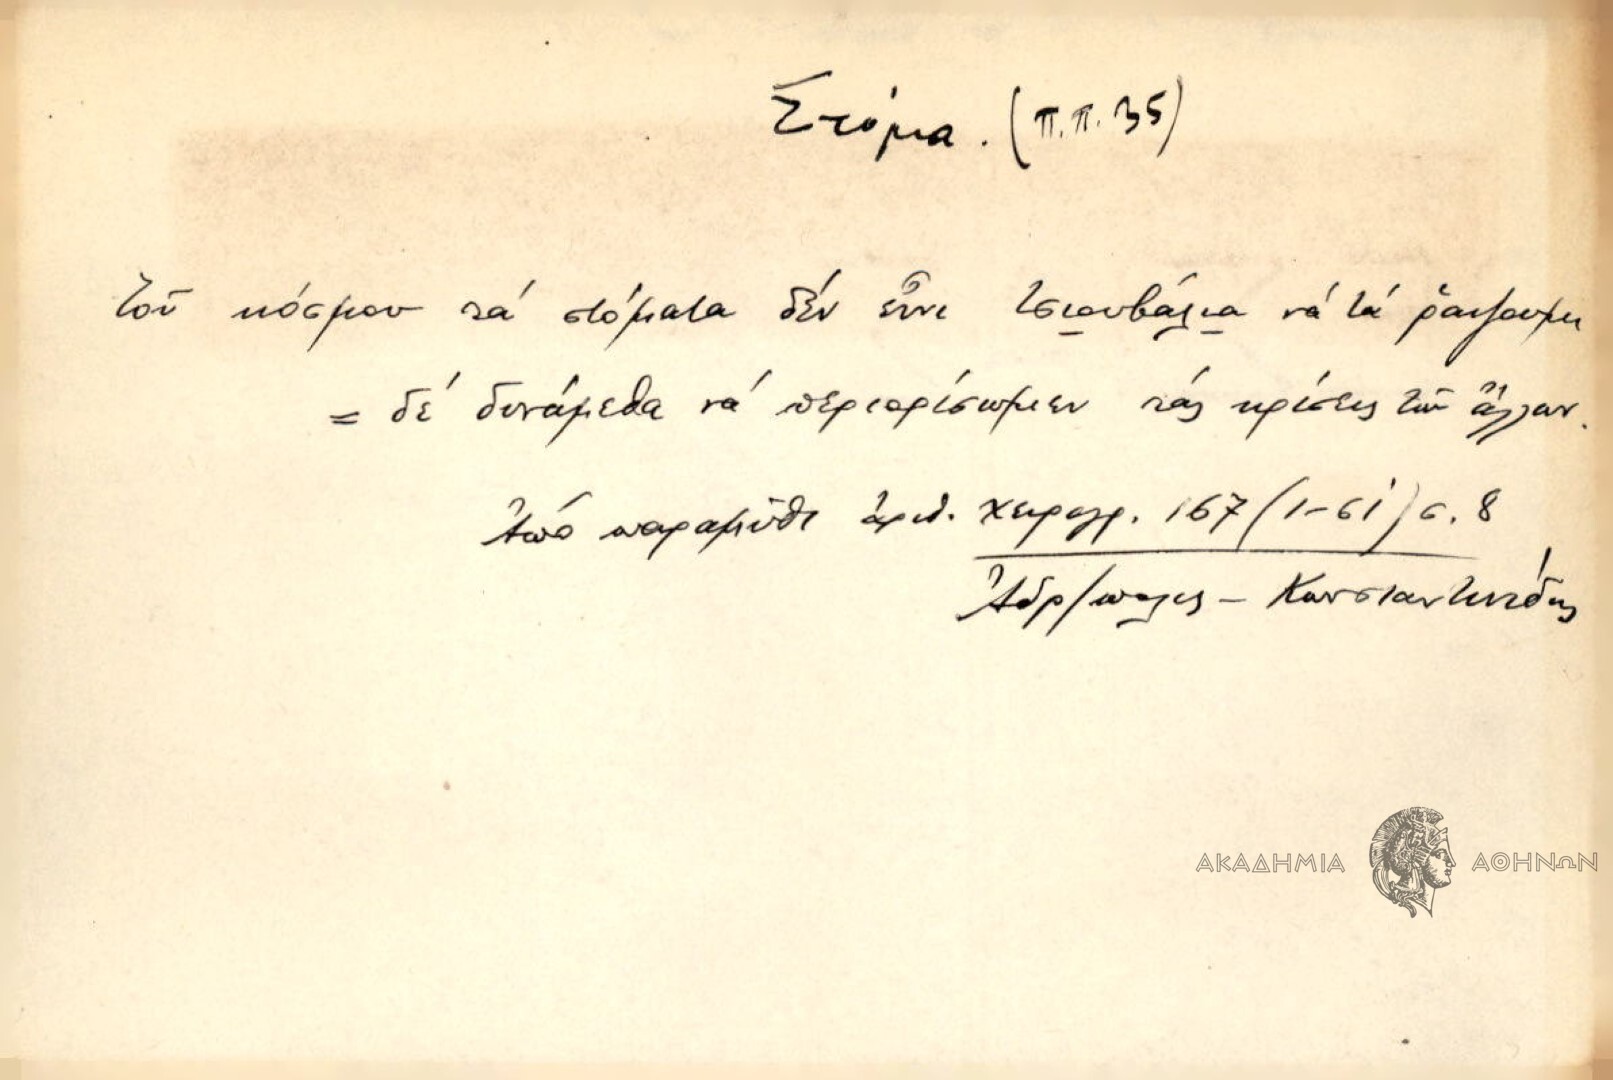 Στόμα. (Π.Π. 35)
Τοῦ κόσμου τά στόματα δέν εἶνι τσιουβάλια νά τά ράψουμι
= δέ δυνάμεθα νά περιορίσωμεν τάς κρίσεις τῶν ἄλλων.
Ἀπό παραμῦθι ἀριθ. χειρογρ. 167 (1-61) σ. 8
Ἀδρ/πολις - Κωνσταντινίδης
ΑΚΑΔΗΜΙΑ ΑΘΗΝΩΝ